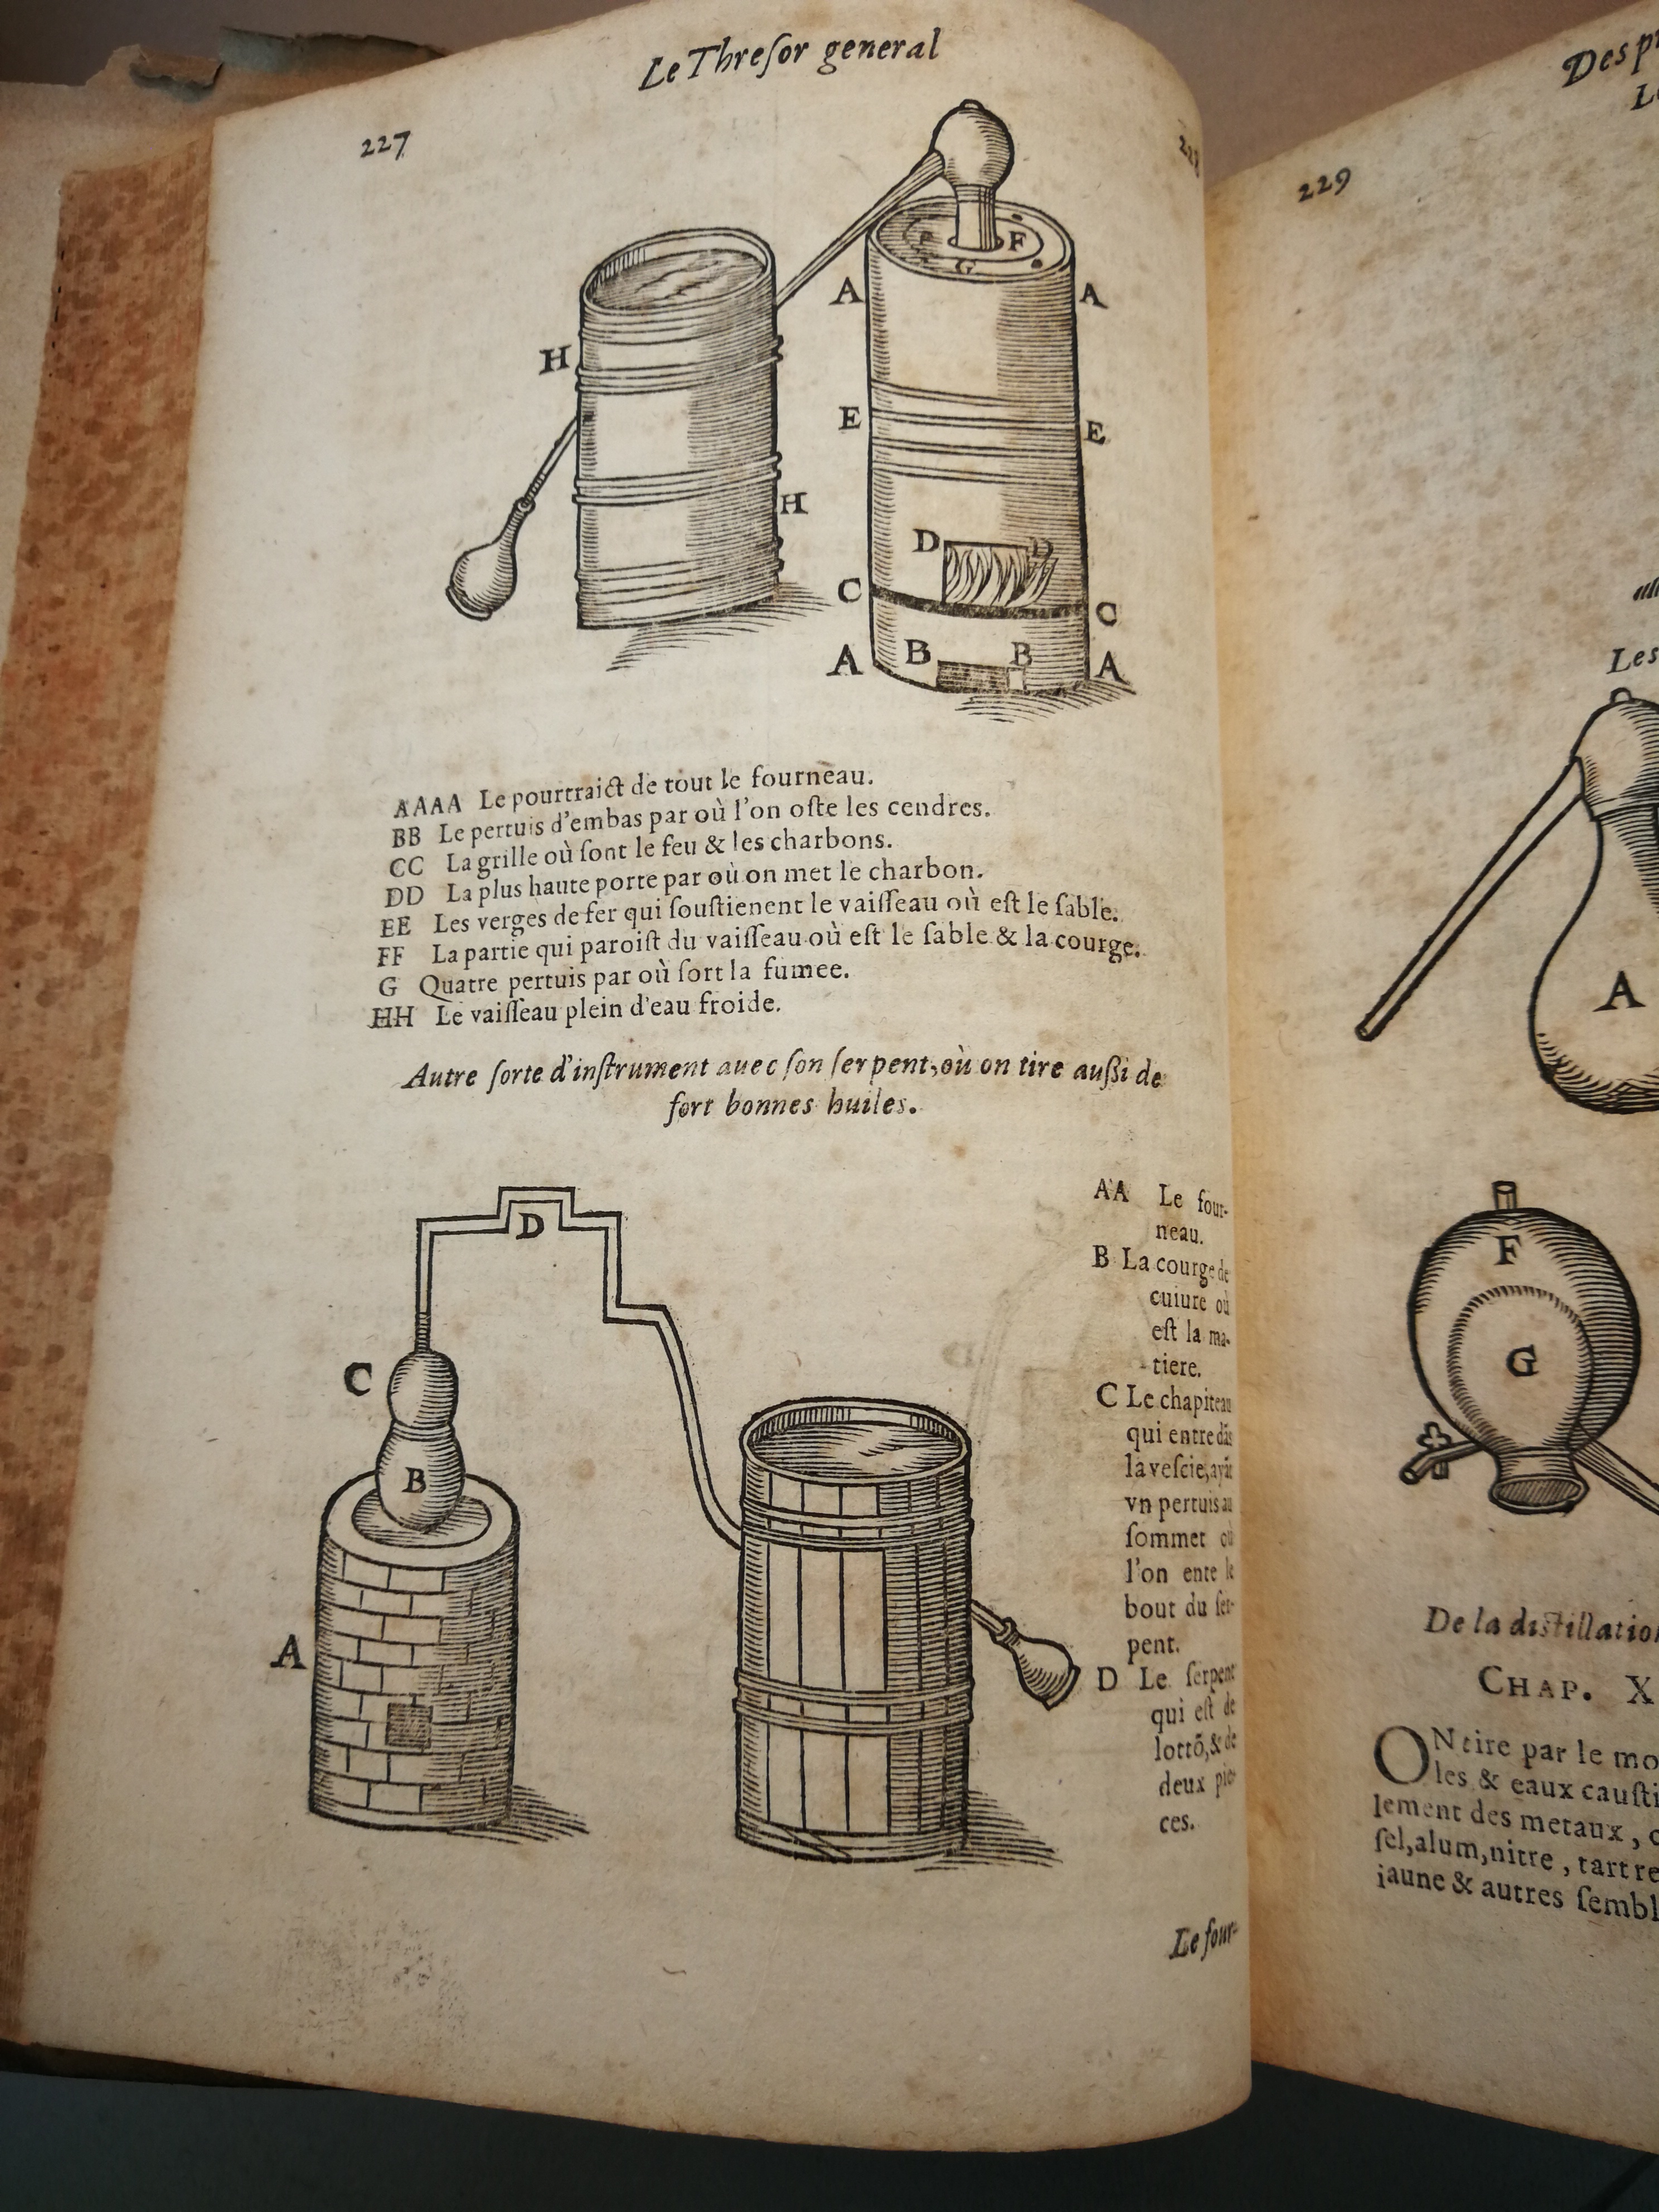 Le Threſor general
227
228
H
H
A
A
F
G
E
E
D
D
C
C
A
B
B
A
AAAA Le pourtraict de tout le fourneau.
BB Le pertuis d'embas par où l'on oſte les cendres.
CC La grille où ſont le feu & les charbons.
DD La plus haute porte par où on met le charbon.
EE Les verges de fer qui ſouſtienent le vaiſſeau où eſt le ſable.
FF La partie qui paroiſt du vaiſſeau où eſt le ſable & la courge.
G Quatre pertuis par où ſort la fumee.
HH Le vaiſſeau plein d'eau froide.
Autre ſorte d'inſtrument auec ſon ſerpent, où on tire außi de
fort bonnes huiles.
D
C
B
A
AA Le four-
neau.
B La courge de
cuiure où
eſt la ma-
tiere.
C Le chapiteau
qui entre dãs
la veſcie, ayãt
vn pertuis au
ſommet où
l'on ente le
bout du ſer-
pent.
D Le ſerpent
qui eſt de
lottõ, & de
deux pie-
ces.
Le four-
229
Des
Les
A
F
G
De la diſtillation
CHAP. X
ON tire par le
les & eaux
lement des metaux,
ſel, alum, nitre, tartre
iaune & autres